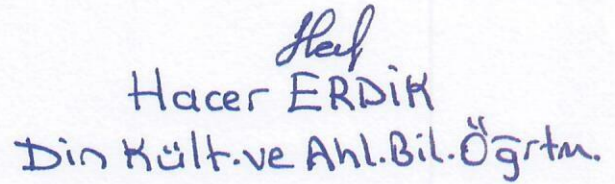 Hacer ERDİK
Din Kült.ve Ahl.Bil.Öğrtm.